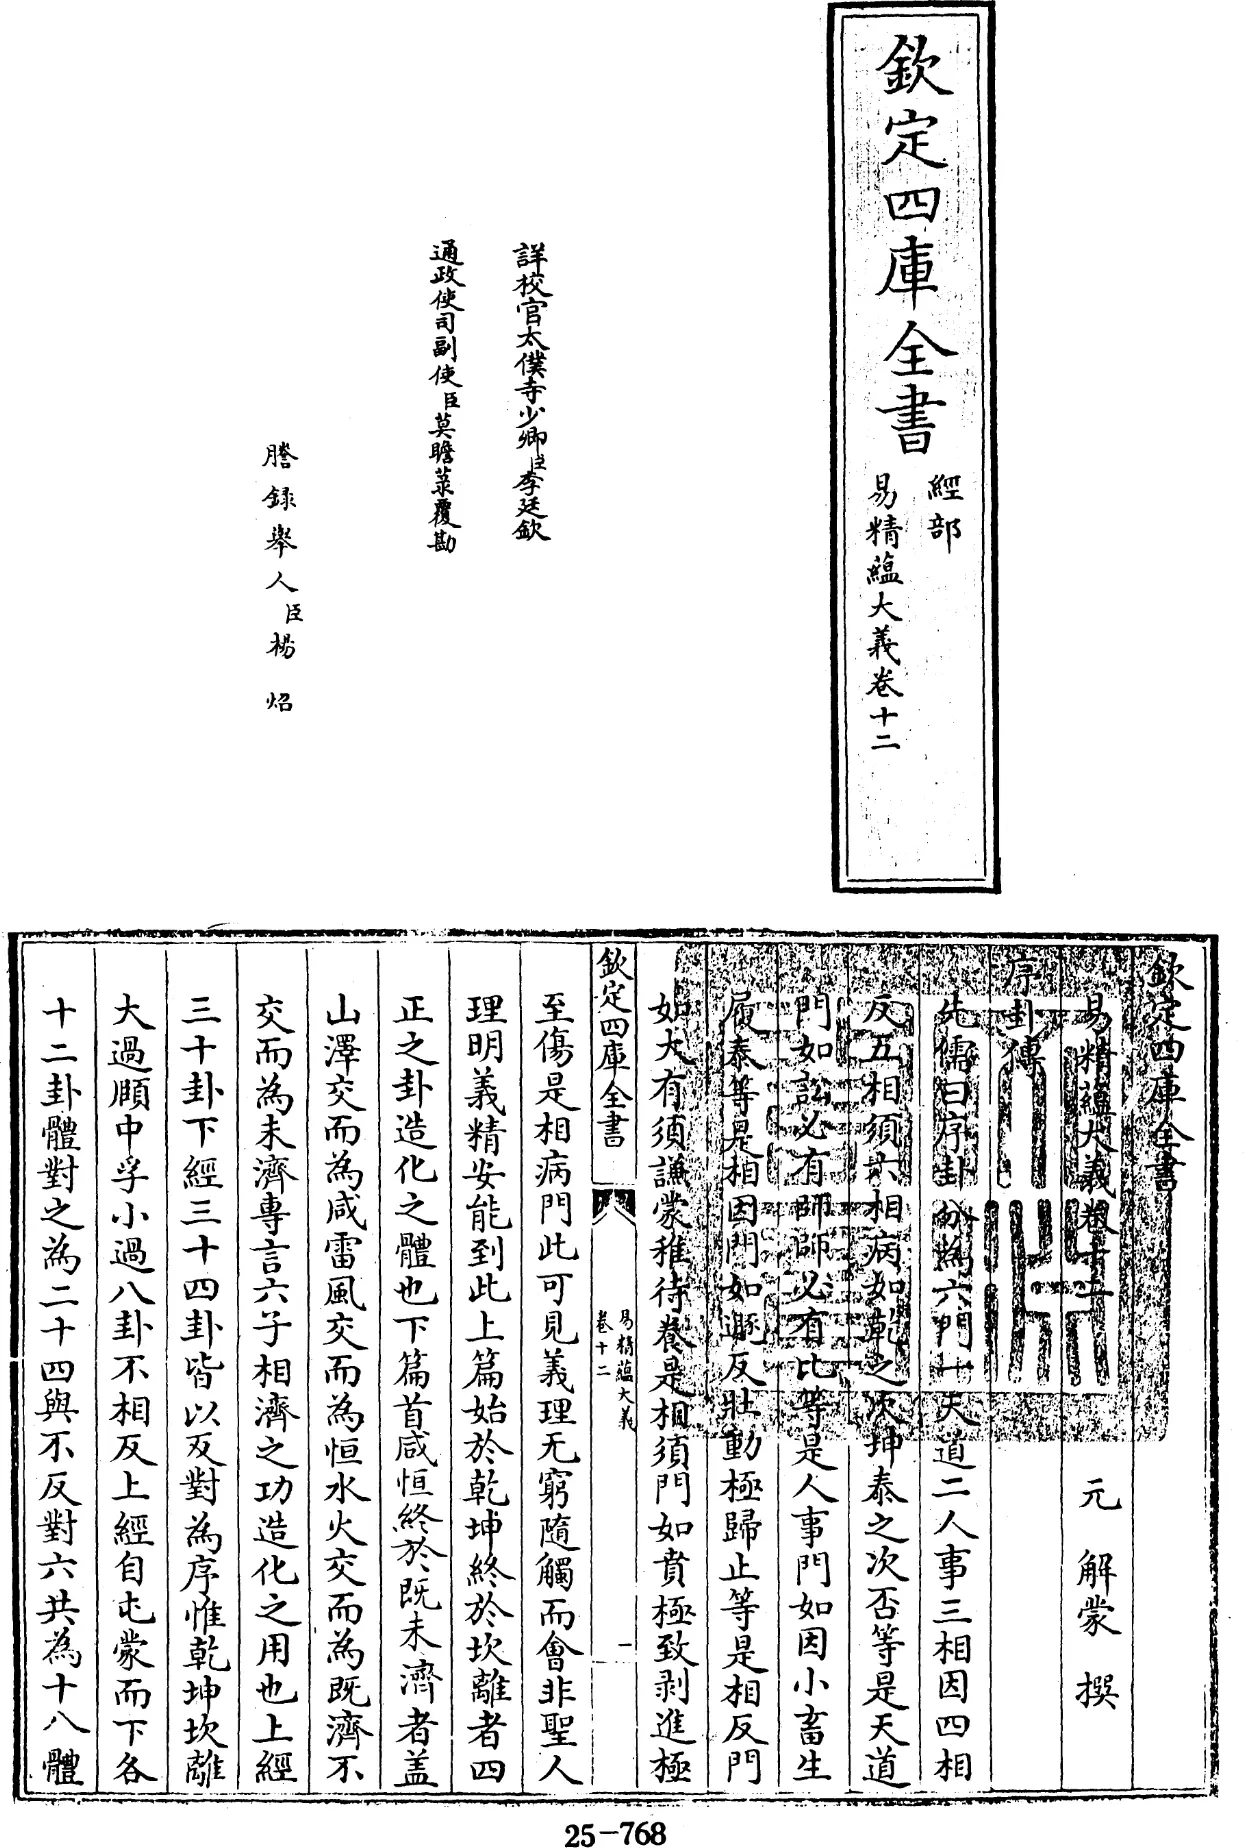 欽定四庫全書
經部
易精藴大義卷十二
詳校官太僕寺少卿臣李廷欽
通政使司副使臣莫瞻菉覆勘
謄録舉人臣楊炤
欽定四庫全書
易精藴大義卷十二
元 解蒙 撰
序卦傳
先儒曰序卦分為六門一天道二人事三相因四相
反五相須六相病如乾之次坤泰之次否等是天道
門如訟必有師師必有比等是人事門如因小畜生
履泰等是相因門如遯反壯動極歸止等是相反門
如大有須謙蒙稚待養是相須門如賁極致剥進極
至傷是相病門此可見義理无窮隨觸而會非聖人
理明義精安能到此上篇始於乾坤終於坎離者四
正之卦造化之體也下篇首咸恒終於既未濟者盖
山澤交而為咸雷風交而為恒水火交而為既濟不
交而為未濟專言六子相濟之功造化之用也上經
三十卦下經三十四卦皆以反對為序惟乾坤坎離
大過頤中孚小過八卦不相反上經自屯蒙而下各
十二卦體對之為二十四與不反對六共為十八體
欽定四庫全書
易精藴大義
卷十二
一
25-768